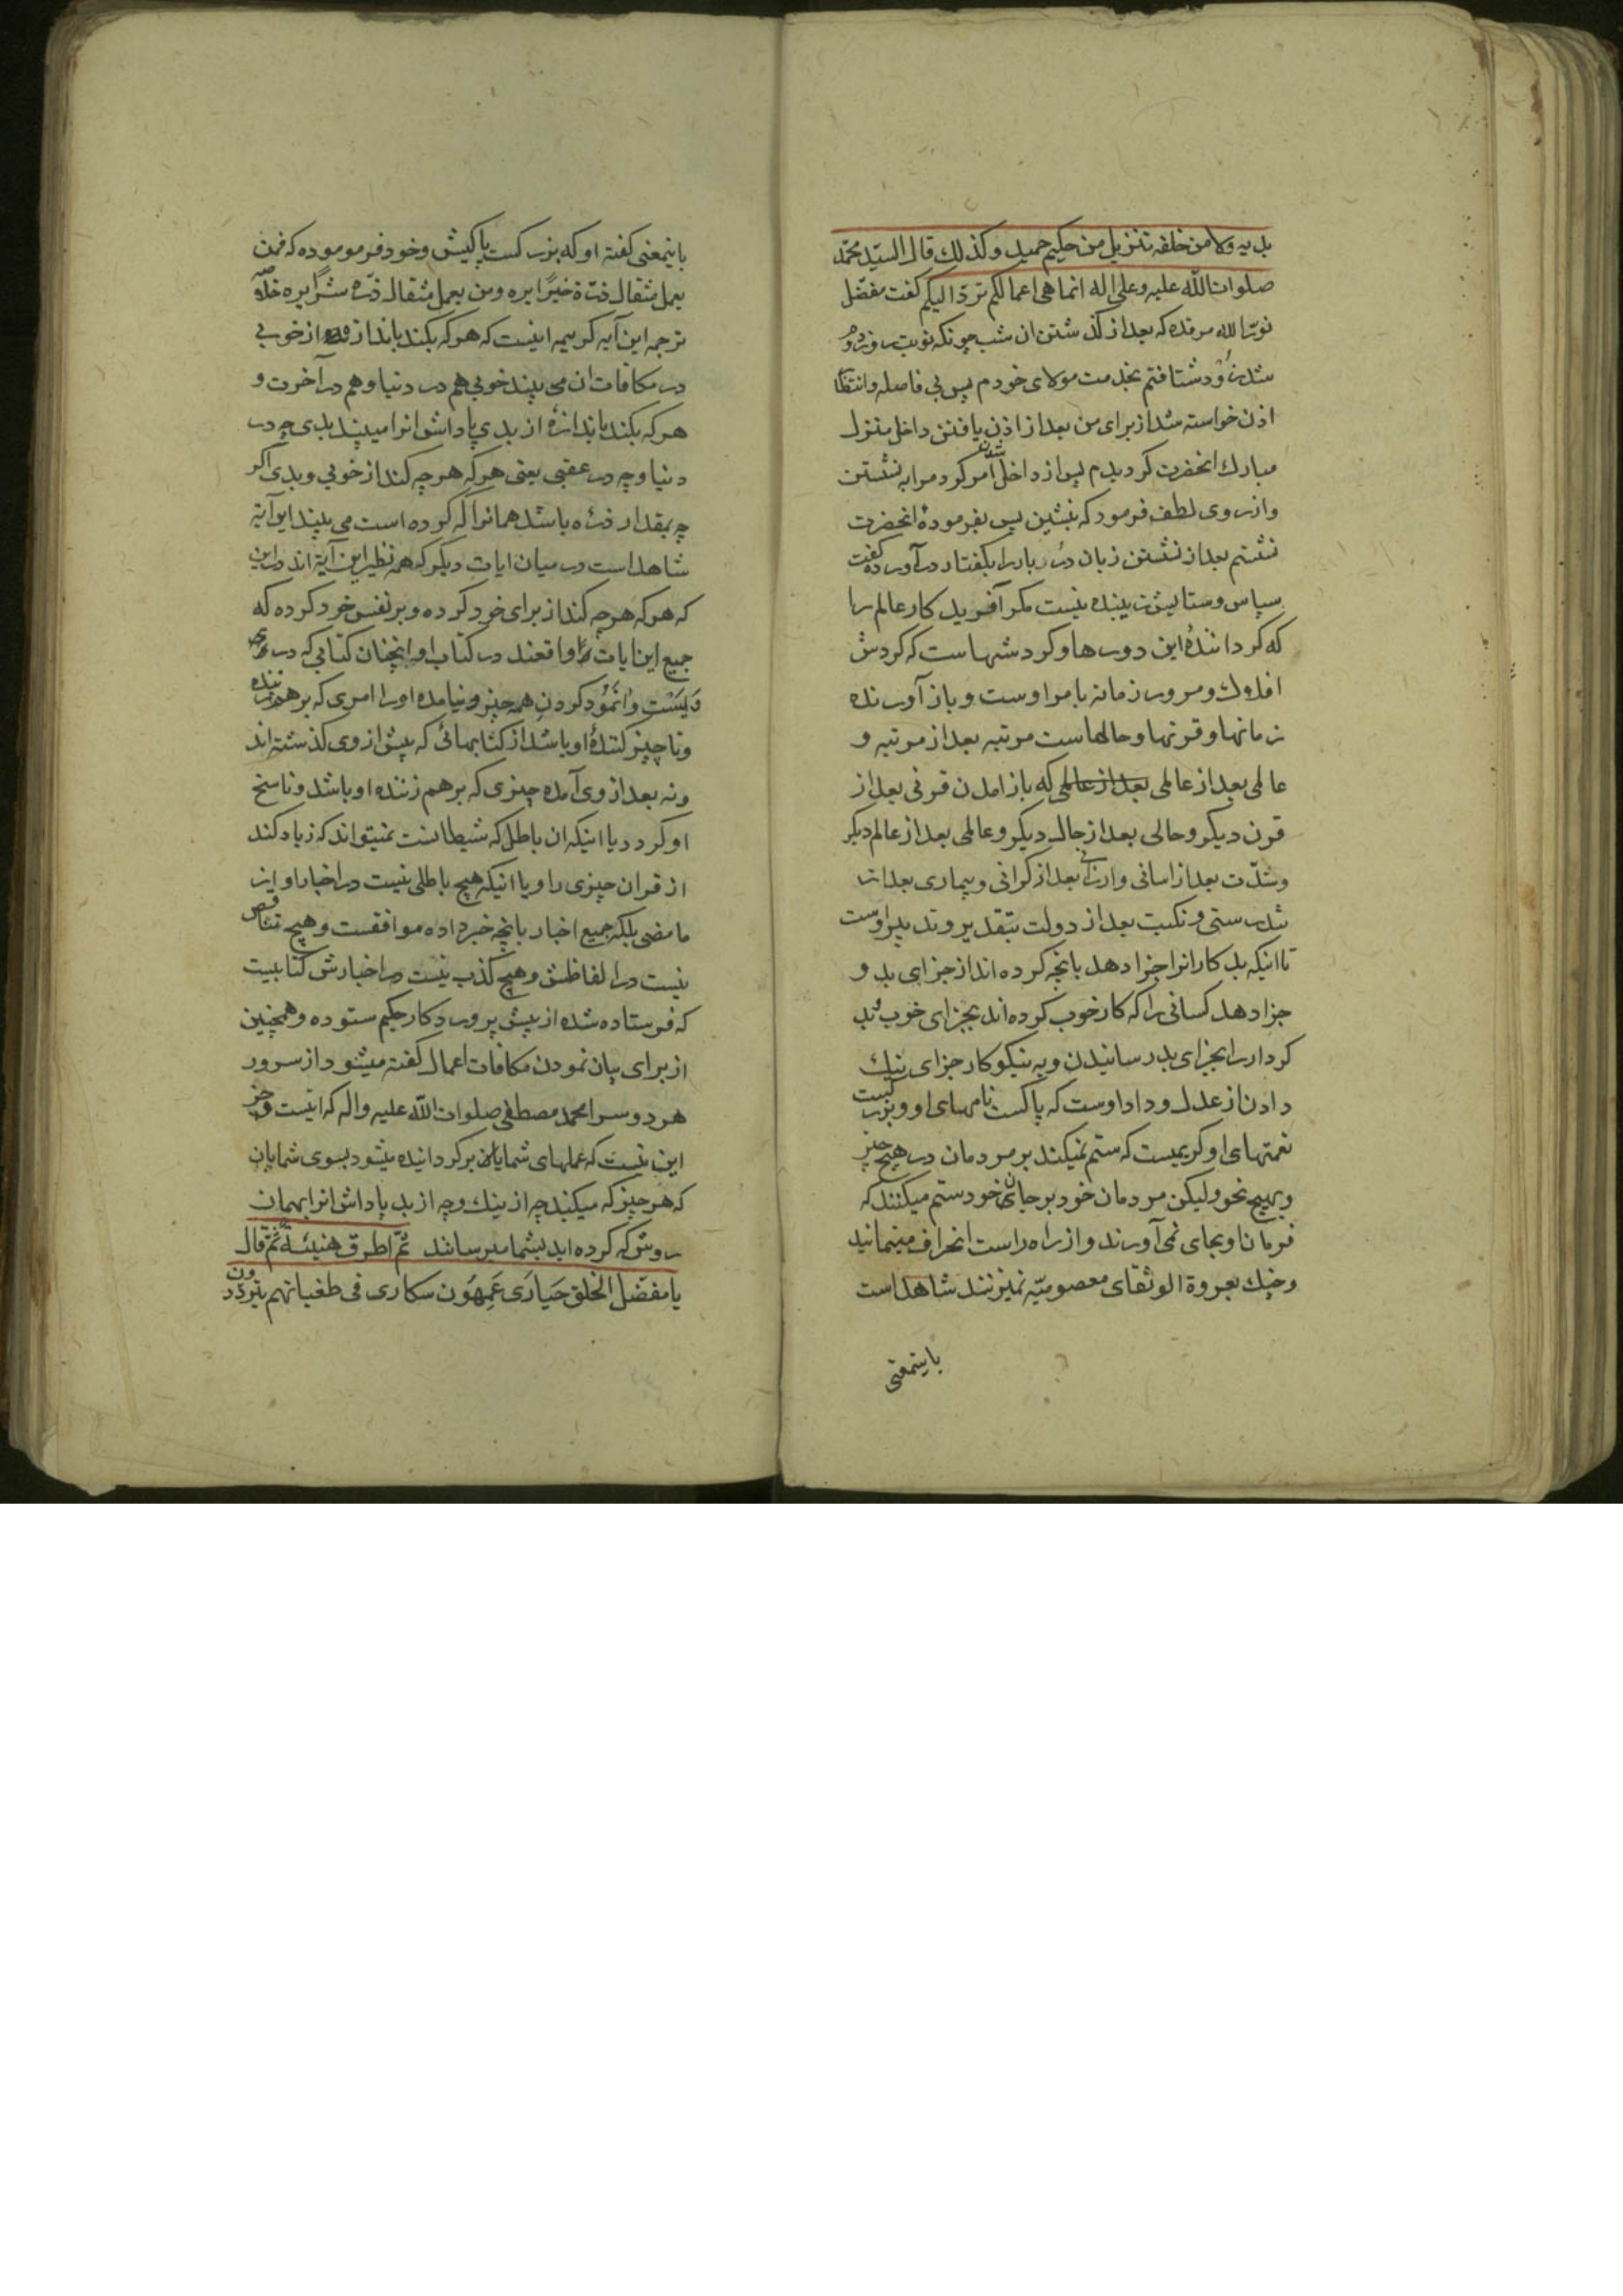 یدیه ولا من خلفه تنزیل من حکیم حمید وکذلک قال السیّد محمّد
صلوات الله علیه وعلی اله انما هی اعمالکم تردّ الیکم کفت مفضّل
نوّر الله مرقده که بعد از کذشتن ان شب چونکه نوبت روز
شد زود شتافتم بخدمت مولای خودم پس بی فاصله وانتظار
اذن خواسته شد از برای من بعد از اذن یافتن داخل منزل
مبارک انحضرت کردیدم پس از داخل شدن امر کرد مرا به نشستن
واز روی لطف فرمود که بنشین پس بفرمودۀ انحضرت
نشستم بعد از نشستن زبان درربار را بکفتار در آورده کفت
سپاس وستایش زیبنده نیست مکر آفرید کار عالم را
که کرداننده این دورها وکردشهاست که کردش
افلاک ومرور زمانه بامر اوست وباز آورنده
زمانها وقرنها وحالهاست مرتبه بعد از مرتبه و
عالمی بعد از عالمی بعد از عالمی که باز امدن قرنی بعد از
قرن دیکر وحالی بعد از حال دیکر وعالمی بعد از عالم دیکر
وشدّت بعد از اسانی وارزانی بعد از کرانی وبیماری بعد از
تندرستی ونکبت بعد از دولت بتقدیر وتدبیر اوست
تا اینکه بد کارانرا جزا دهد بانچه کرده اند از جزای بد و
جزا دهد کسانی را که کار خوب کرده اند بجزای خوب بد
کردار را بجزای بد رسانیدن وبه نیکو کار جزای نیک
دادن از عدل وداد اوست که پاکست نامهای او وبزرکست
نعمتهای او کریمیست که ستم نمیکند بر مردمان در هیچ چیز
وبهیچ نحو ولیکن مردمان خود بر جان خود ستم میکنند که
فرمان او بجای نمی آورند واز راه راست انحراف مینمایند
وچنک بعروة الوثقای معصومیّه نمیزنند شاهد است
باینمعنی
باینمعنی کفته او که بزرکست پاکیش وخود فرمو موده که فمن
یعمل مثقال ذرّة خیرًا یره ومن یعمل مثقال ذرّه شرًا یره خلاصه
ترجمه این آیه کریمه اینست که هر که بکند باندازه از خوبی
در مکافات ان می بیند خوبی هم در دنیا وهم در آخرت و
هر که بکند باندازۀ از بدی پاداش انرا میبیند بدی چه در
دنیا وچه در عقبی یعنی هر که هر چه کند از خوبی وبدی اکر
چه بمقدار ذرّه باشد همانرا که کرده است می بیند این آیه
شاهد است در میان ایات دیکر که همه نظیر این آیة اند در این
که هر که هر چه کند از برای خود کرده وبر نفس خود کرده که
جمیع این ایات واقعند در کتاب او انچنان کتابی که در
وَیسَت وانمُود کردن همه چیز ونیامده اورا امری که برهم زننده
وناچیز کنندۀ او باشد از کتابهائی که پیش از وی کذشته اند
ونه بعد از وی آمده چیزی که برهم زننده او باشد وناسخ
او کردد یا اینکه ان باطل که شیطانست نمیتواند که زیاد کند
از قران چیزی را ویا اینکه هیچ باطلی نیست در اخبار او از
ما مضی بلکه جمیع اخبار بانچه خبر داده موافقست وهیچ تناقص
نیست در الفاظش وهیچ کذب نیست در اخبارش کتابیست
که فرستاده شده از پیش پرورد کار حکیم ستوده وهمچنین
از برای بیان نمودن مکافات اعمال کفته میشود از سرور
هر دو سرا محمد مصطفی صلوات الله علیه واله که اینست وجز
این نیست که عملهای شمایان بر کردانیده میشود بسوی شمایان
که هر چیز که میکنید چه از نیک وچه از بد پاداش انرا بهمان
روش که کرده اید بشما میرسانند ثمّ اطرق هنیئة ثمّ قال
یا مفضّل الخلق حَیارَی عَمِهُون سکاری فی طغیانهم یتردّدون